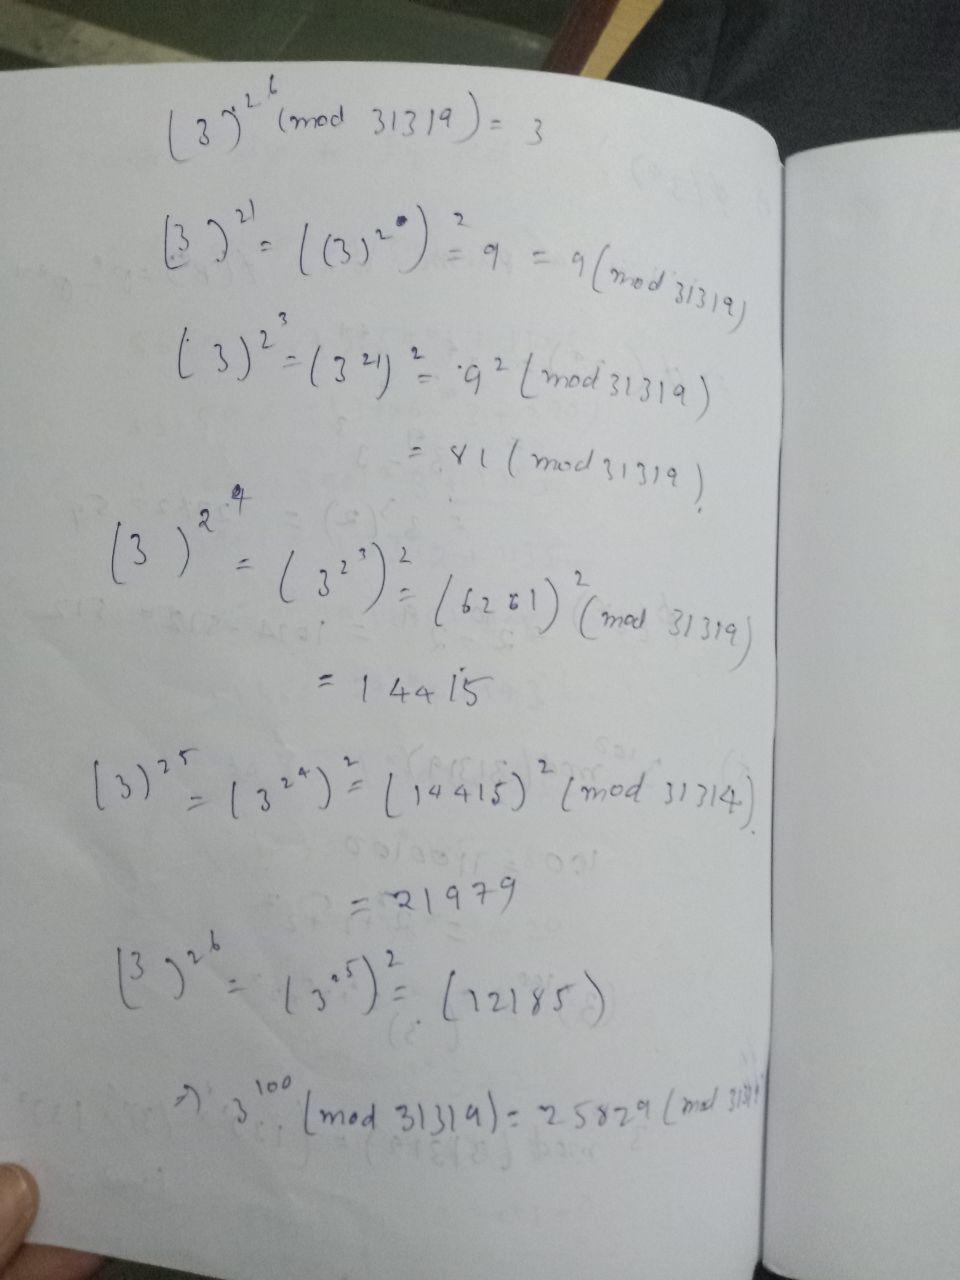 (3)^2^6 (mod 31319) = 3
(3)^21 = ((3)^2^0)^2 = 9 = 9 (mod 31319)
(3)^2^3 = (3^21)^2 = 9^2 (mod 31319)
= 81 (mod 31319).
(3)^2^4 = (3^2^3)^2 = (6261)^2 (mod 31319)
= 14415
(3)^2^5 = (3^2^4)^2 = (14415)^2 (mod 31314).
= 21979
(3)^2^6 = (3^2^5)^2 = (12185)
⇒ 3^100 (mod 31319) = 25829 (mod 31319